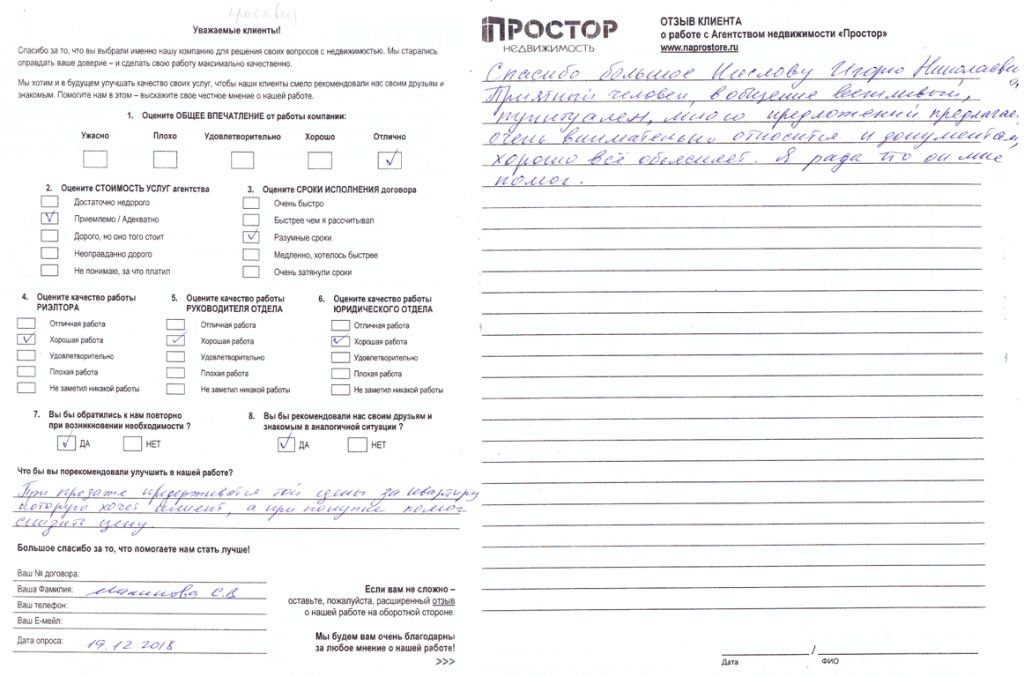 Уважаемые клиенты!
Спасибо за то, что вы выбрали именно нашу компанию для решения своих вопросов с недвижимостью. Мы старались
оправдать ваше доверие – и сделать свою работу максимально качественно.
Мы хотим и в будущем улучшать качество своих услуг, чтобы наши клиенты смело рекомендовали нас своим друзьям и
знакомым. Помогите нам в этом – выскажите свое честное мнение о нашей работе.
1. Оцените ОБЩЕЕ ВПЕЧАТЛЕНИЕ от работы компании:
Ужасно Плохо Удовлетворительно Хорошо Отлично
2. Оцените СТОИМОСТЬ УСЛУГ агентства
Достаточно недорого
Приемлемо / Адекватно
Дорого, но оно того стоит
Неоправданно дорого
Не понимаю, за что платил
3. Оцените СРОКИ ИСПОЛНЕНИЯ договора
Очень быстро
Быстрее чем я рассчитывал
Разумные сроки
Медленно, хотелось быстрее
Очень затянули сроки
4. Оцените качество работы
РИЭЛТОРА
Отличная работа
Хорошая работа
Удовлетворительно
Плохая работа
Не заметил никакой работы
5. Оцените качество работы
РУКОВОДИТЕЛЯ ОТДЕЛА
Отличная работа
Хорошая работа
Удовлетворительно
Плохая работа
Не заметил никакой работы
6. Оцените качество работы
ЮРИДИЧЕСКОГО ОТДЕЛА
Отличная работа
Хорошая работа
Удовлетворительно
Плохая работа
Не заметил никакой работы
7. Вы бы обратились к нам повторно
при возникновении необходимости ?
ДА НЕТ
8. Вы бы рекомендовали нас своим друзьям и
знакомым в аналогичной ситуации ?
ДА НЕТ
Что бы вы порекомендовали улучшить в нашей работе?
При продаже придерживатся той цены за квартиру
которую хочет клиент, а при покупке помог
снизить цену.
Большое спасибо за то, что помогаете нам стать лучше!
Ваш № договора:
Ваша Фамилия: С.В
Ваш телефон:
Ваш Е-мейл:
Дата опроса: 19.12 2018
Если вам не сложно –
оставьте, пожалуйста, расширенный отзыв
о нашей работе на оборотной стороне.
Мы будем вам очень благодарны
за любое мнение о нашей работе!
>>>
ПРОСТОР
НЕДВИЖИМОСТЬ
ОТЗЫВ КЛИЕНТА
о работе с Агентством недвижимости «Простор»
www.naprostore.ru
Спасибо большое Игорю Николаевичу,
Приятный человек, в общение вежливый,
пунктуален, много предложений предлагает,
очень внимательно относится к документам,
хорошо всё объясняет. Я рада что он мне
помог.
/
Дата ФИО